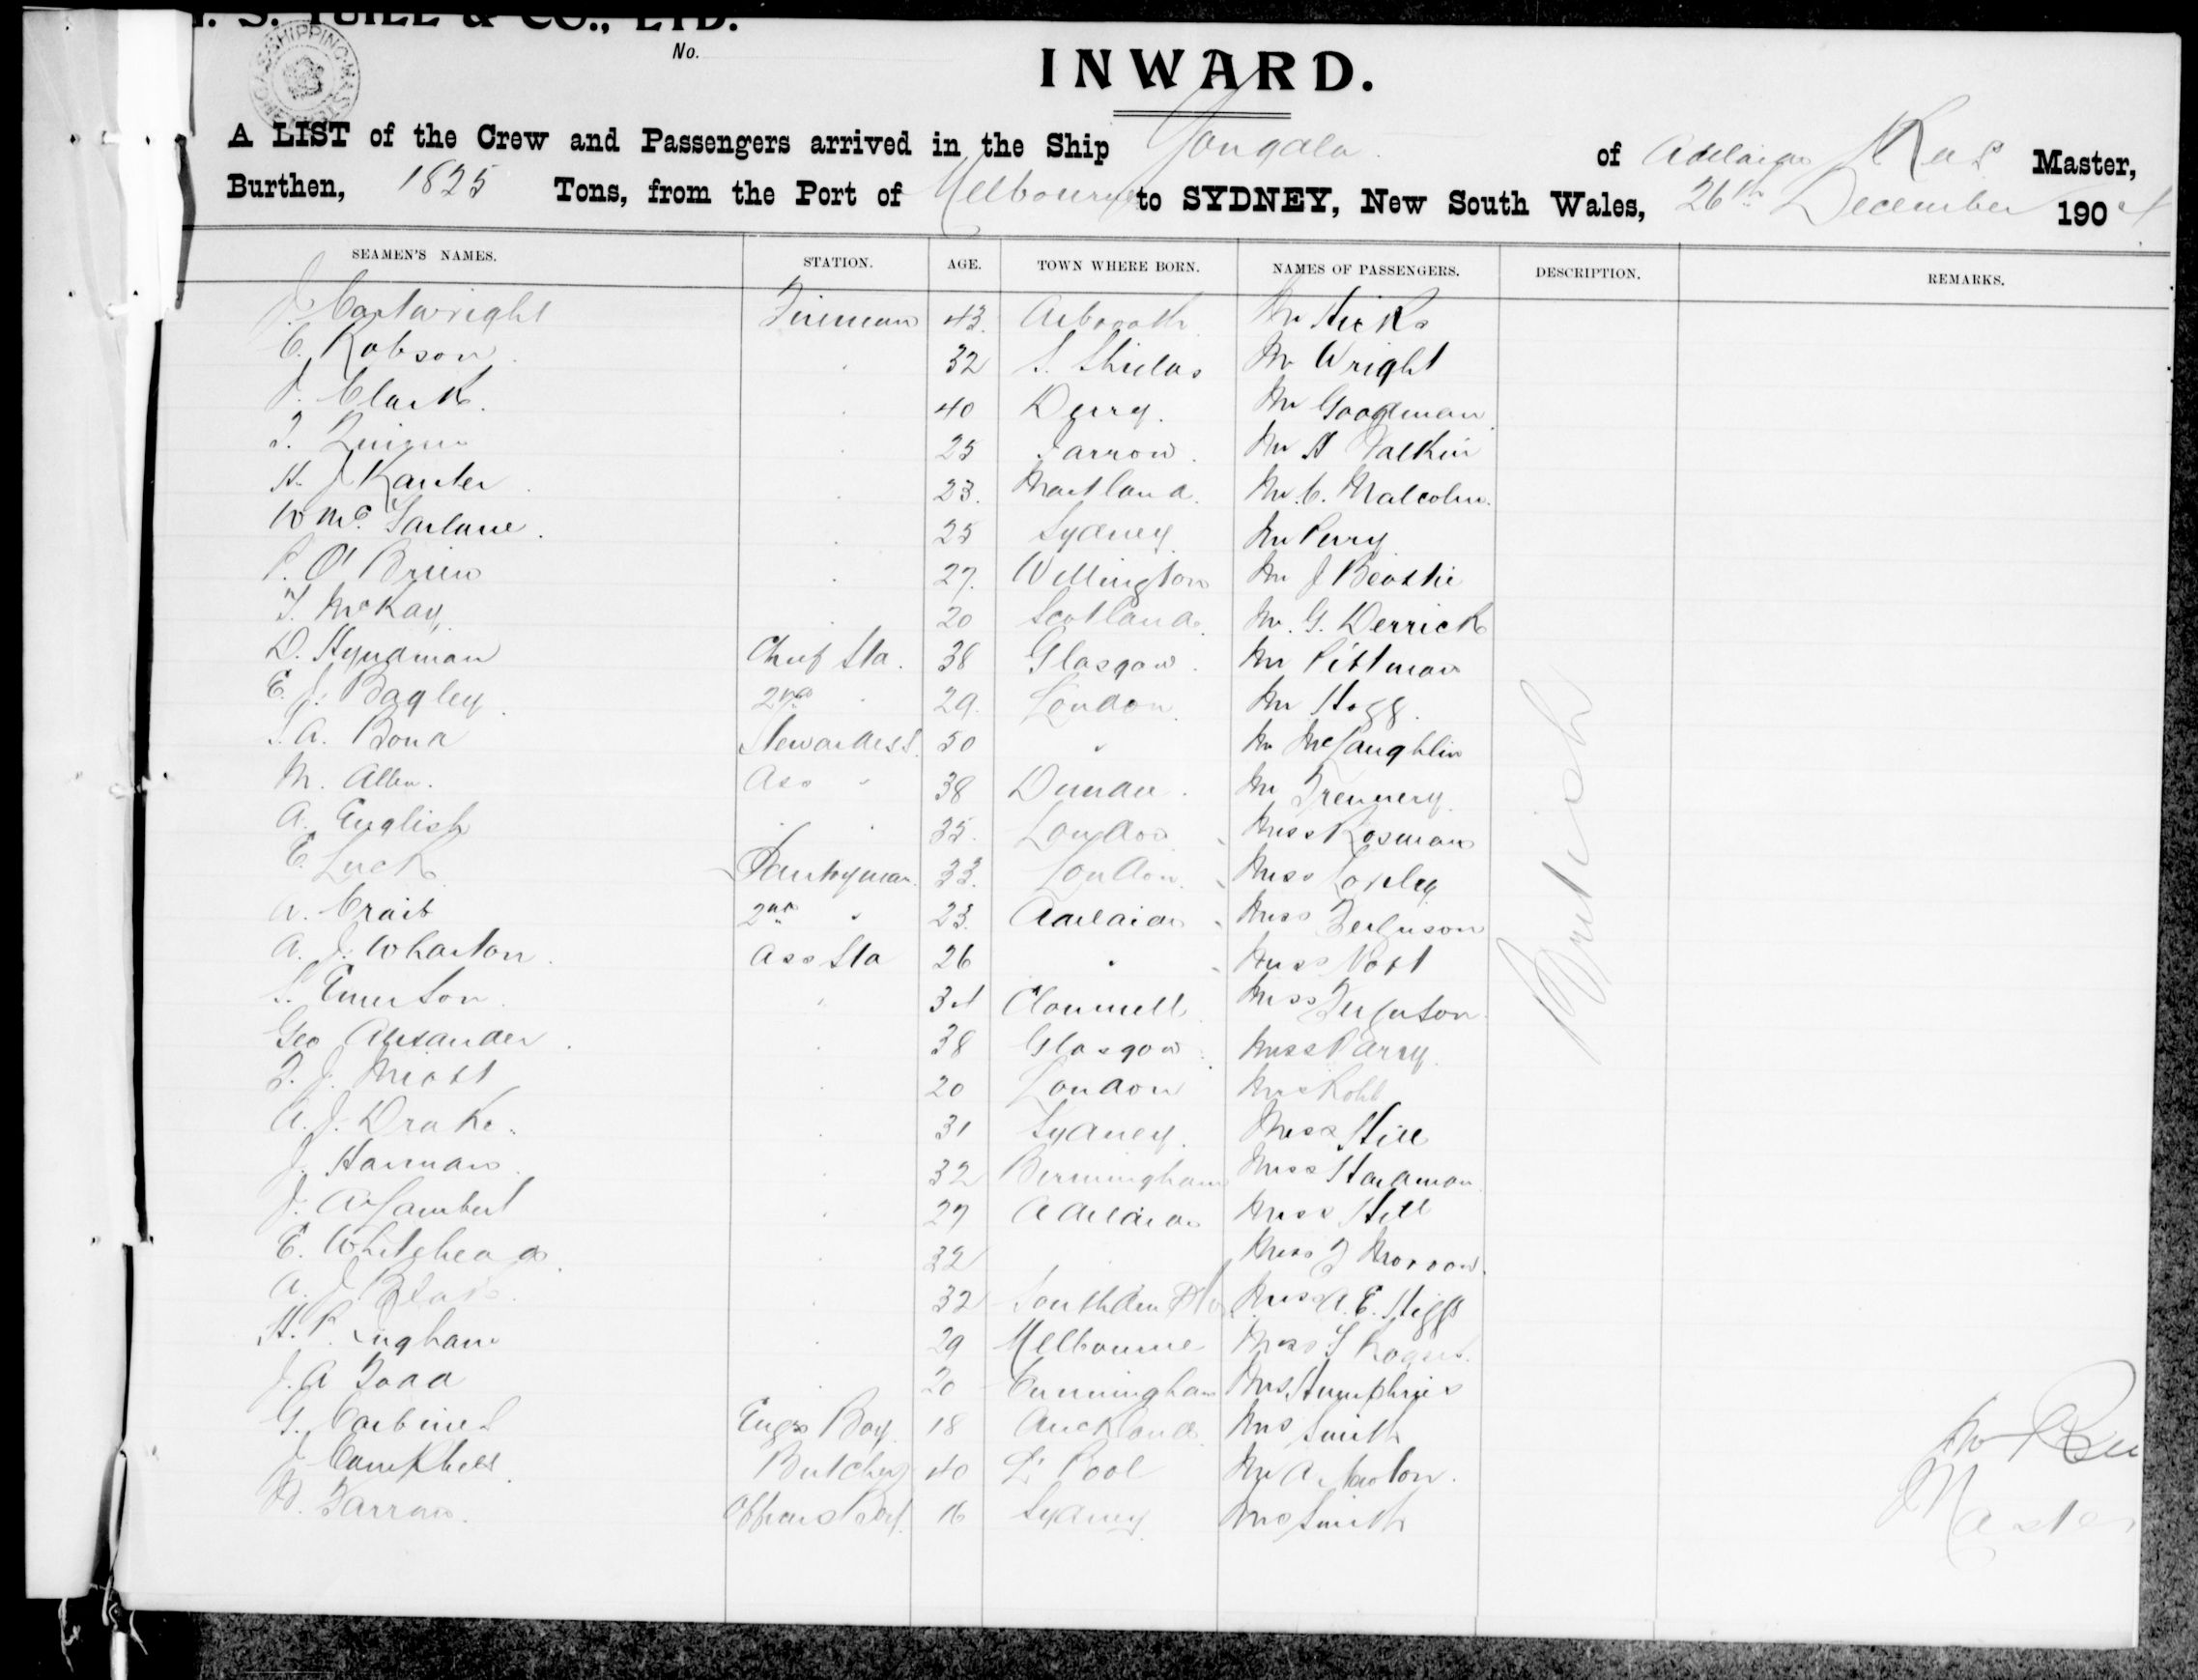 T. S. YUILL & CO., LTD.
SHIPPING MASTER'S OFFICE
No.
INWARD.
A LIST of the Crew and Passengers arrived in the Ship Yongala of Adelaide Rees Master,
Burthen, 1825 Tons, from the Port of Melbourne to SYDNEY, New South Wales, 26th December 1904
SEAMEN'S NAMES. STATION. AGE. TOWN WHERE BORN. NAMES OF PASSENGERS. DESCRIPTION. REMARKS.
J. Cartwright Fireman 43. Arbroath Mr Hicks
C. Robson 32 S. Shields Mr Wright
J. Clark. 40 Derry. Mr Goodman
25 Jarrow. Mr H Falkin
H. J Kanter 23. Maitland. Mr. C. Malcolm.
W McFarlane. 25 Sydney Mr Perry
P. O'Brien 27. Wellington Mr J Beattie
T. McKay 20 Scotland. Mr. G. Derrick
D. Hyndman Chief Std. 38 Glasgow. Mr Pittman
E. J. Bagley 2nd " 29. London. Mr Hogg.
S. A. Bond Stewardess. 50 " Mr McLaughlin
M. Allen. Ass " 38 Mr Trennery.
A. English 35. London Miss Rosman
E. Luck Pantryman. 33. London. Miss
A. Craib 2nd " 23. Adelaide Miss Ferguson
A. J. Wharton. Ass Std 26 " Miss Nott
S. Emerson. 34 Clonmell Miss Ferguson
Geo Alexander. 38 Glasgow Miss Parry.
F. J. Miott 20 London Robb
A. J. Drake. 31 Sydney. Miss Hill
J. Harman. 32 Birmingham Miss Hardman
J. A Lambert 27 Adelaide Miss Hill
E. Whitehead. 32 Miss F Morrow.
A. J. Blake. 32 Miss A. E. Higgs
H. P. Ingham 29 Melbourne Miss Rogers.
J. A Todd 20 Cunningham Mrs Humphries
G. Carbines Engrs Boy 18 Auckland Mrs Smith
J Campbell. Butcher 40 L'Pool Mr A. Newton.
H. Farrow. Officers Boy. 16 Sydney Mrs Smith
British
Wm Rees
Master